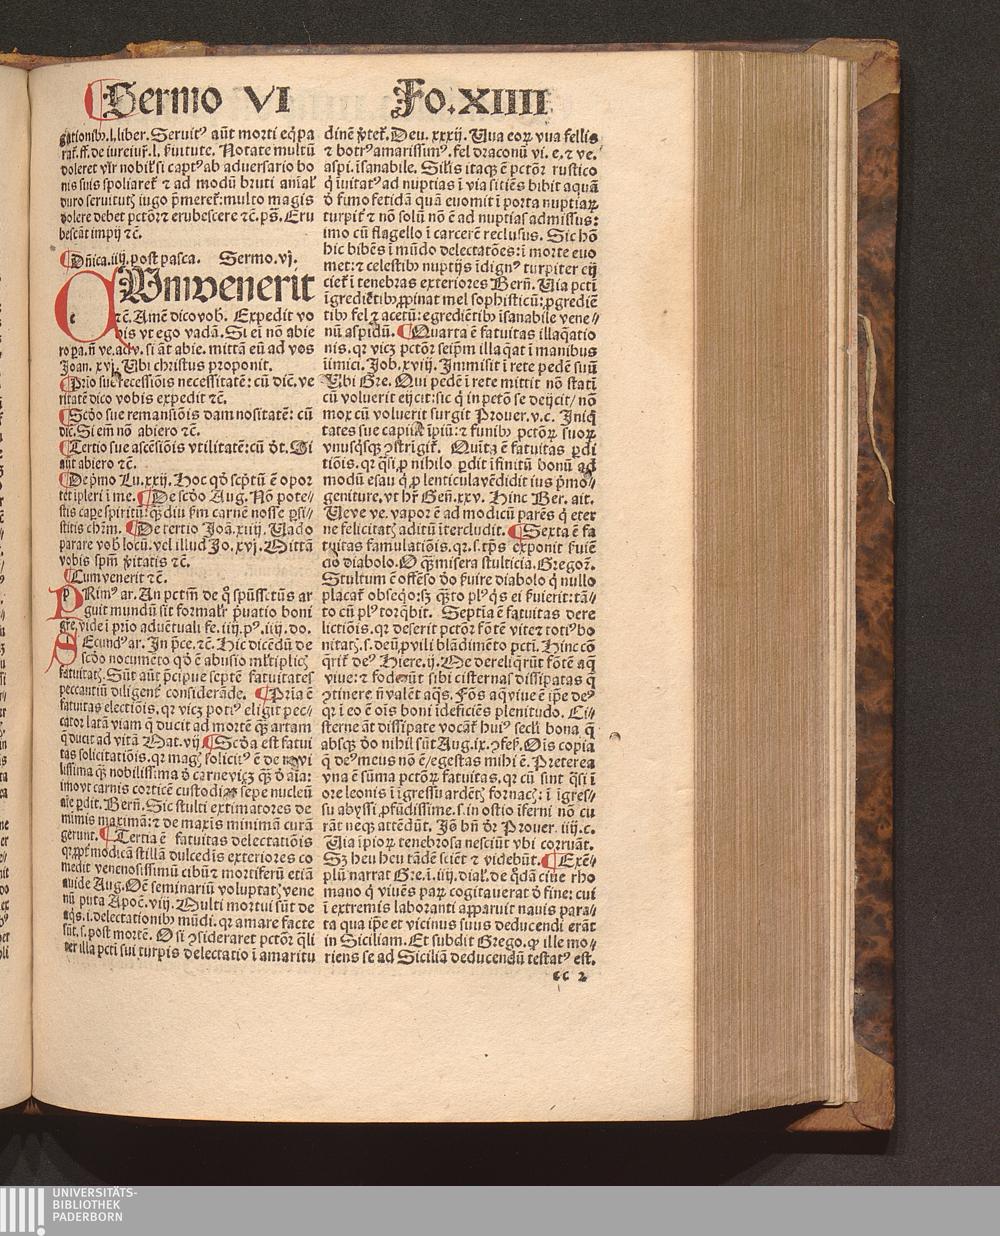 Sermo VI Fo.XIIII
gationibꝰ.l.liber. Seruitꝰ aūt morti eq̄pa
rat̄.ff.de iureiur̄.l. ẜuitute. Notate multū
doleret vir nobilʼsi captꝰ ab aduersario bo
nis suis spoliaret̄ ⁊ ad modū bruti aīalʼ
duro seruitutꝫ iugo p̄meret̄: multo magis
dolere debet pctōr ⁊ erubescere ⁊c̄. pš. Eru
bescāt impij ⁊c̄.
Dn̄ica.iiij.post pasca. Sermo.vj.
QUm venerit
⁊c̄. Amē dico vob̄. Expedit vo
bis vt ego vadā. Si em̄ nō abie
ro pa.n̄ ve.adv. si āt abie. mittā eū ad vos
Joan. xvj. Ubi christus proponit.
Prīo sue recessiōis necessitatē: cū dic̄. ve
ritatē dico vobis expedit ⁊c̄.
Scd̄o sue remansiōis damnositatē: cū
dic̄. Si em̄ nō abiero ⁊c̄.
Tertio sue ascēsiōis vtilitatē: cū d̄t. Si
aūt abiero ⁊c̄.
De p̄mo Lu.xxij. Hoc qd̄ scp̄tū ē opor
tet īpleri ī me. De scd̄o Aug. Nō pote⸗
stis capere spiritū: qᷓdiu ẜm carnē nosse ꝑsi⸗
stitis chrm̄. De tertio Joā.xiiij. Uado
parare vob̄ locū. vel illud Jo. xvj. Mittā
vobis spm̄ ṽitatis ⁊c̄.
Cum venerit ⁊c̄.
PRimꝰ ar. An pctm̄ de q̄ spūss. tūs ar
guit mundū sit formalr̄ p̄uatio boni
gre, vide ī prīo aduētuali fe.iiij.pꝰ.iiij.do.
SEcundꝰ ar. In p̄ce. ⁊c̄. Hic dicēdū de
scd̄o nocumēto qd̄ ē abusio mľtiplicꝫ
fatuitatꝫ. Sūt aūt p̄cipue septē fatuitates
peccantiū diligent̄ considerāde. Pria ē
fatuitas electiōis. qr vicꝫ potiꝰ eligit pec⸗
cator latā viam q̄ ducit ad mortē qᷓ artam
q̄ ducit ad vitā Mat. vij Scd̄a est fatui
tas solicitatiōis. qr magꝫ solicitꝰ ē de
lissima qᷓ nobilissima
imo vt carnis corticē custodi sepe nucleū
aīe ꝑdit. Bern̄. Sic stulti extimatores de
mimis maximā: ⁊ de maxīs minimā curā
gerunt. Tertia ē fatuitas delectatiōis
qr ꝓpt̄ modicā stillā dulcedīs exteriores co
medit venenosissimū cibū ⁊ mortiferū etiā
auide Aug. Oē seminariū voluptatꝫ vene
nū puta Apoc̄. viij. Multi mortui sūt de
aqīs.i.delectationibꝰ mūdi. qr amare facte
sūt. s. post mortē. O si ꝯsideraret pctōr qᷓli
ter illa pcti sui turpis delectatio ī amaritu
dinē ꝟtet̄. Deu. xxxij. Uua eoꝝ vua fellis
⁊ botrꝰ amarissimꝰ. fel draconū vi. e. ⁊ ve.
aspi. īsanabile. Silīs itaqꝫ ē pctōr rustico
q̄ īuitatꝰ ad nuptias ī via sitiēs bibit aquā
d̄ fimo fetidā quā euomit ī porta nuptiaꝝ
turpit̄ ⁊ nō solū nō ē ad nuptias admissus:
imo cū flagello ī carcerē reclusus. Sic hō
hic bibēs ī mūdo delectatōes: ī morte euo
met: ⁊ celestibꝰ nuptijs īdignꝰ turpiter eij
ciet̄ ī tenebras exteriores Bern̄. Uia pcti
īgrediētibꝰ ꝓpinat mel sophisticū: ꝓgrediē
tibꝰ fel ⁊ acetū: egrediētibꝰ īsanabile vene⸗
nū aspidū. Quarta ē fatuitas illaqᷓatio
nis. qr vicꝫ pctōr seip̄m illaqᷓat ī manibus
īimici. Job. xviij. Immisit ī rete pedē suū
Ubi Gre. Qui pedē ī rete mittit nō stati
cū voluerit eijcit: sic q̄ in petō se deijcit/ nō
mox cū voluerit surgit Prouer. v.c. Iniq̄
tates sue capiūt īpiū: ⁊ funibꝰ pctōꝝ suoꝝ
vnusqͥsqꝫ ꝯstrigit̄. Quīta ē fatuitas ꝑdi
tiōis. qr qᷓsi ꝓ nihilo ꝑdit īfinitū bonū ad
modū esau q̄ ꝓ lenticula vēdidit ius p̄mo⸗
geniture, vt hr̄ Gen̄.xxv. Hinc Ber. ait.
Ueve ve. vapor ē ad modicū parēs q̄ eter
ne felicitatꝫ aditū ītercludit. Sexta ē fa
tuitas famulatiōis. qr. s. tp̄s exponit ẜuiē
do diabolo. O qᷓ misera stulticia. Gregor̄.
Stultum ē offēso d̄o ẜuire diabolo q̄ nullo
placat̄ obseqͦ: sꝫ qᷓto plꝰ qͥs ei ẜuierit: tā⸗
to cū plꝰ torqͣbit. Septīa ē fatuitas dere
lictiōis. qr deserit pctōr fōtē vite ⁊ totiꝰ bo
nitatꝫ. s. deū, ꝓ vili blādimēto pcti. Hinc cō
qͥrit̄ deꝰ Hiere. ij. Me dereliqͥrūt fōtē aq̄
viue: ⁊ foderūt sibi cisternas dissipatas q̄
ꝯtinere n̄ valēt aqͣs. Fōs aq̄ viue ē ip̄e deꝰ
qr ī eo ē oīs boni īdeficiēs plenitudo. Ci⸗
sterne āt dissipate vocāt̄ huiꝰ secľi bona q̄
absqꝫ d̄o nihil sūt Aug.ix.ꝯfes̄. Oīs copia
q̄ deꝰ meus nō ē/ egestas mihi ē. Preterea
vna ē sūma pctōꝝ fatuitas. qr cū sint qᷓsi ī
ore leonis ī īgressu ardētꝫ fornacꝫ: ī īgres⸗
su abyssi ꝓfūdissime. s. in ostio īferni nō cu
rāt neqꝫ attēdūt. Jō bn̄ dr̄ Prouer. iiij.c.
Uia īpioꝝ tenebrosa nesciūt vbi corruāt.
Sꝫ heu heu tādē sciēt ⁊ videbūt. Exē⸗
plū narrat Gre. ī.iiij.dial̄. de qͦdā ciue rho
mano q̄ viuēs paꝝ cogitauerat d̄ fine: cui
ī extremis laboranti apparuit nauis para⸗
ta qua ip̄e et vicinus suus deducendi erāt
in Siciliam. Et subdit Grego. ꝙ ille mo⸗
riens se ad Siciliā deducendū testatꝰ est.
cc 2
UNIVERSITÄTS-
BIBLIOTHEK
PADERBORN